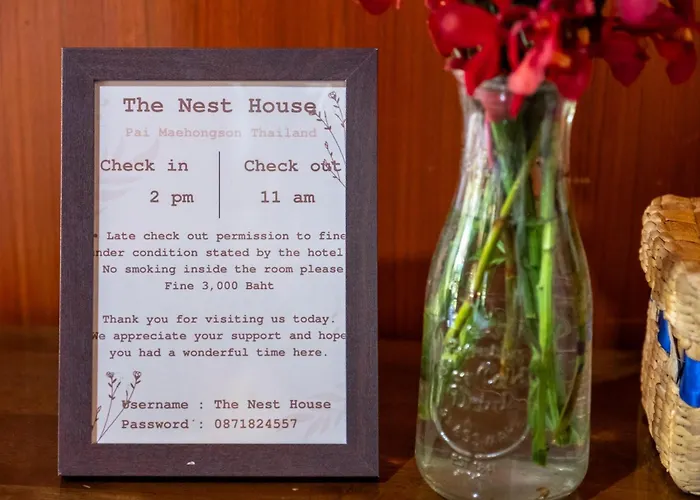 The Nest House
Pai Maehongson Thailand
Check in
2 pm
Check out
11 am
Late check out permission to fine
under condition stated by the hotel
No smoking inside the room please
Fine 3,000 Baht
Thank you for visiting us today.
We appreciate your support and hope
you had a wonderful time here.
Username : The Nest House
Password : 0871824557